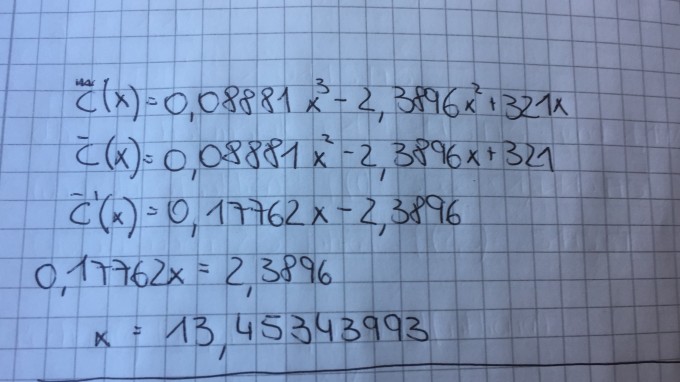 C(x) = 0,08881x³ - 2,3896x² + 321x
C̄(x) = 0,08881x² - 2,3896x + 321
C̄'(x) = 0,17762x - 2,3896
0,17762x = 2,3896
x = 13,45343993